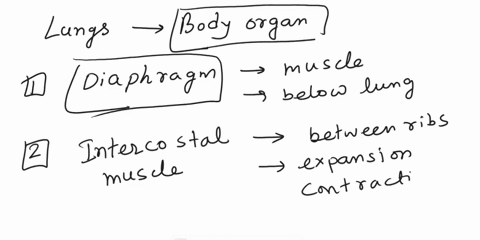 Lungs → Body organ
1 Diaphragm → muscle
→ below lung
2 Intercostal → between ribs
muscle → expansion
contracti